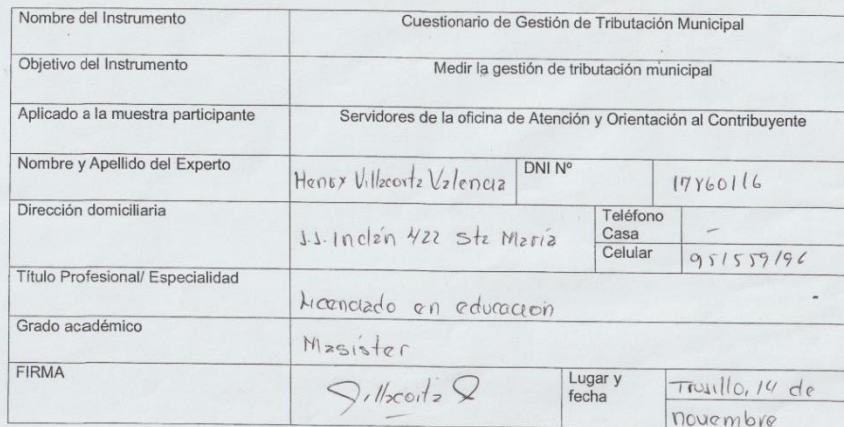 Nombre del Instrumento Cuestionario de Gestión de Tributación Municipal
Objetivo del Instrumento Medir la gestión de tributación municipal
Aplicado a la muestra participante Servidores de la oficina de Atención y Orientación al Contribuyente
Nombre y Apellido del Experto Henry Villacorta Valencia DNI Nº
Dirección domiciliaria J.J. Inclán 422 Sta María Teléfono Casa -
Celular 951559196
Título Profesional/ Especialidad Licenciado en educacion
Grado académico Magister
FIRMA Villacorta Lugar y fecha Trujillo, 14 de
noviembre